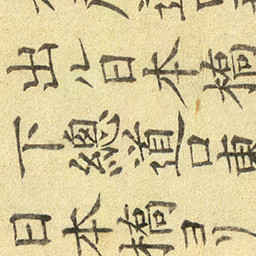 出ハ日本橋
下總道口東
日本橋ヨリ